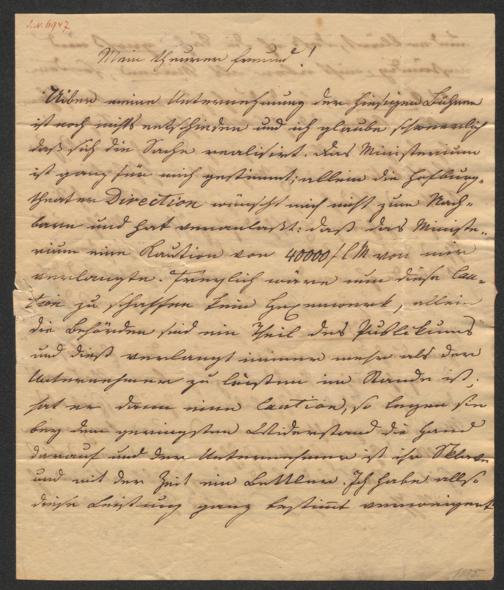 I.N. 6947
Mein theurer Freund!
Über meine Unternehmung der hiesigen Bühne
ist noch nichts entschieden und ich glaube schwerlich
daß sich die Sache realisirt. Das Ministerium
ist ganz für mich gestimmt; allein die Hofburg-
theater Direction wünscht mich nicht zum Nach-
barn und hat veranlaßt: daß das Ministe-
rium eine Kaution von 40000 f CM von mir
verlangte. Freylich wäre nun diese Cau-
tion zu schaffen kein Hexenwerk, allein
die Behörden sind ein Theil des Publikums
und dieß verlangt immer mehr als der
Unternehmer zu leisten im Stande ist,
hat er dann eine Caution, so legen sie
bey dem geringsten Widerstand die Hand
darauf und der Unternehmer ist ihr Sklave
und mit der Zeit ein Bettler. Ich habe also
diese Leistung ganz bestimmt verweigert